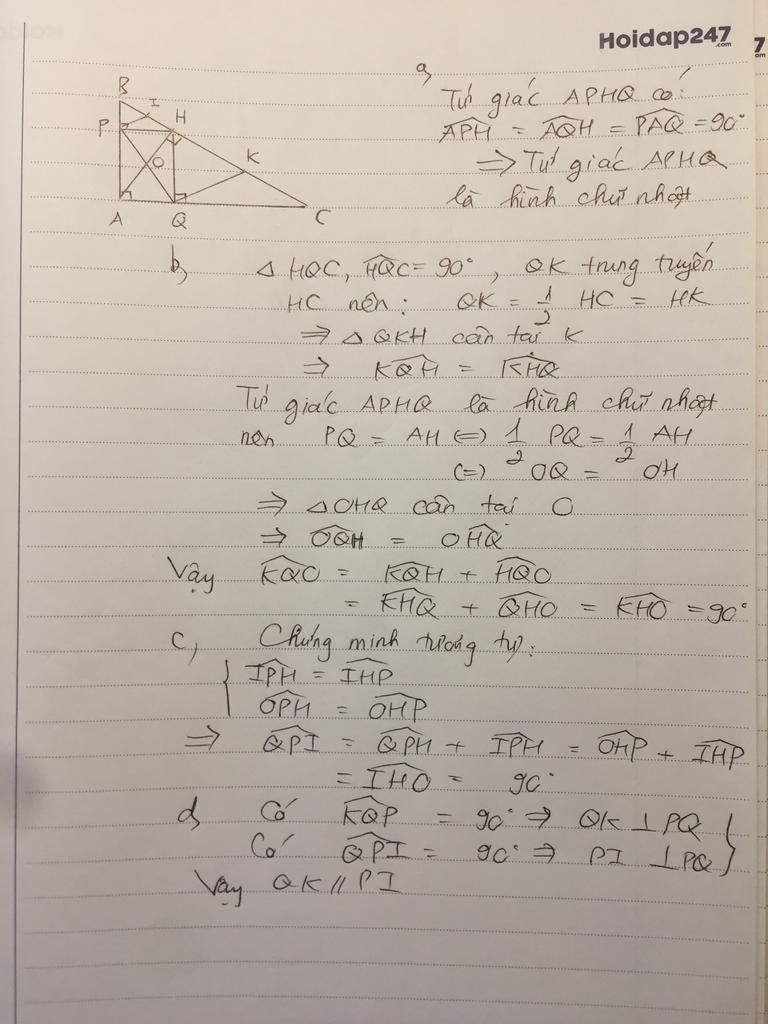 Hoidap247
.com
7
om
a,
Tứ giác APHQ có:
APH = AQH = PAQ = 90°
=> Tứ giác APHQ
là hình chữ nhật
B
I
P
H
O
K
A
Q
C
b, △ HQC, HQC = 90°, QK trung tuyến
HC nên: QK = 1/2 HC = HK
=> △ QKH cân tai K
=> KQH = KHQ
Tứ giác APHQ là hình chữ nhật
nên PQ = AH (=) 1/2 PQ = 1/2 AH
(=) OQ = OH
=> △ OHQ cân tai O
=> OQH = OHQ
Vậy KQO = KQH + HQO
= KHQ + QHO = KHO = 90°
c, Chứng minh tương tự:
{ IPH = IHP
OPH = OHP
=> QPI = QPH + IPH = OHP + IHP
= IHO = 90°
d, Có KQP = 90° => QK ⊥ PQ }
Có QPI = 90° => PI ⊥ PQ
Vậy QK // PI